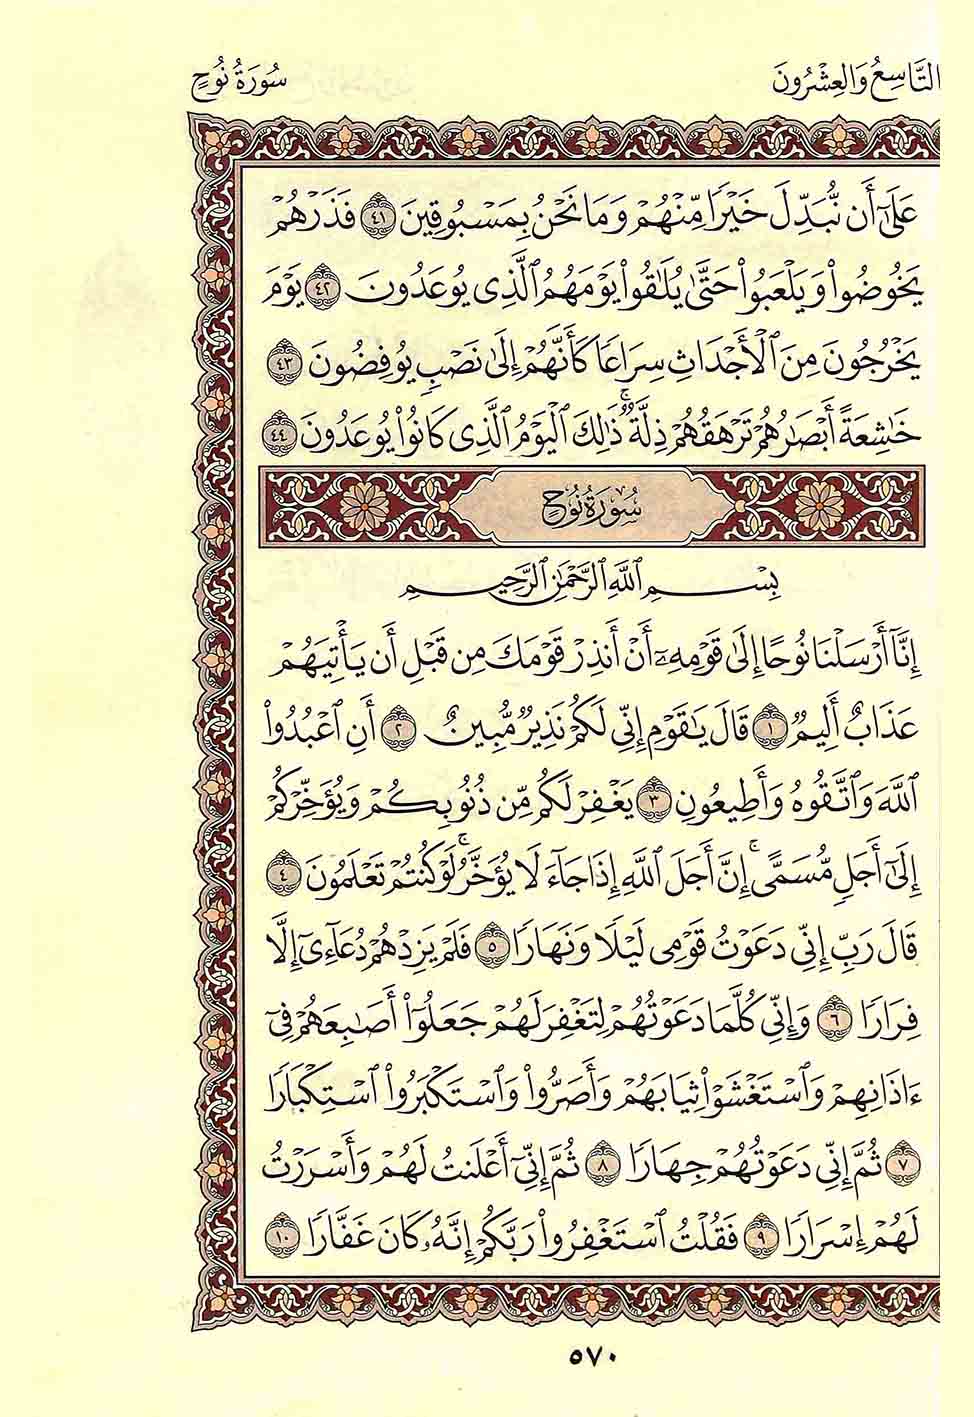 التَّاسِعُ وَالعِشْرُونَ
سُورَةُ نُوحٍ
عَلَىٰٓ أَن نُّبَدِّلَ خَيْرًا مِّنْهُمْ وَمَا نَحْنُ بِمَسْبُوقِينَ ٤١ فَذَرْهُمْ
يَخُوضُوا۟ وَيَلْعَبُوا۟ حَتَّىٰ يُلَٰقُوا۟ يَوْمَهُمُ ٱلَّذِى يُوعَدُونَ ٤٢ يَوْمَ
يَخْرُجُونَ مِنَ ٱلْأَجْدَاثِ سِرَاعًا كَأَنَّهُمْ إِلَىٰ نَصْبٍ يُوفِضُونَ ٤٣
خَٰشِعَةً أَبْصَٰرُهُمْ تَرْهَقُهُمْ ذِلَّةٌ ۚ ذَٰلِكَ ٱلْيَوْمُ ٱلَّذِى كَانُوا۟ يُوعَدُونَ ٤٤
سُورَةُ نُوحٍ
بِسْمِ ٱللَّهِ ٱلرَّحْمَٰنِ ٱلرَّحِيمِ
إِنَّآ أَرْسَلْنَا نُوحًا إِلَىٰ قَوْمِهِۦٓ أَنْ أَنذِرْ قَوْمَكَ مِن قَبْلِ أَن يَأْتِيَهُمْ
عَذَابٌ أَلِيمٌ ١ قَالَ يَٰقَوْمِ إِنِّى لَكُمْ نَذِيرٌ مُّبِينٌ ٢ أَنِ ٱعْبُدُوا۟
ٱللَّهَ وَٱتَّقُوهُ وَأَطِيعُونِ ٣ يَغْفِرْ لَكُم مِّن ذُنُوبِكُمْ وَيُؤَخِّرْكُمْ
إِلَىٰٓ أَجَلٍ مُّسَمًّى ۚ إِنَّ أَجَلَ ٱللَّهِ إِذَا جَآءَ لَا يُؤَخَّرُ ۚ لَوْ كُنتُمْ تَعْلَمُونَ ٤
قَالَ رَبِّ إِنِّى دَعَوْتُ قَوْمِى لَيْلًا وَنَهَارًا ٥ فَلَمْ يَزِدْهُمْ دُعَآءِىٓ إِلَّا
فِرَارًا ٦ وَإِنِّى كُلَّمَا دَعَوْتُهُمْ لِتَغْفِرَ لَهُمْ جَعَلُوٓا۟ أَصَٰبِعَهُمْ فِىٓ
ءَاذَانِهِمْ وَٱسْتَغْشَوْا۟ ثِيَابَهُمْ وَأَصَرُّوا۟ وَٱسْتَكْبَرُوا۟ ٱسْتِكْبَارًا
٧ ثُمَّ إِنِّى دَعَوْتُهُمْ جِهَارًا ٨ ثُمَّ إِنِّىٓ أَعْلَنتُ لَهُمْ وَأَسْرَرْتُ
لَهُمْ إِسْرَارًا ٩ فَقُلْتُ ٱسْتَغْفِرُوا۟ رَبَّكُمْ إِنَّهُۥ كَانَ غَفَّارًا ١٠
٥٧٠